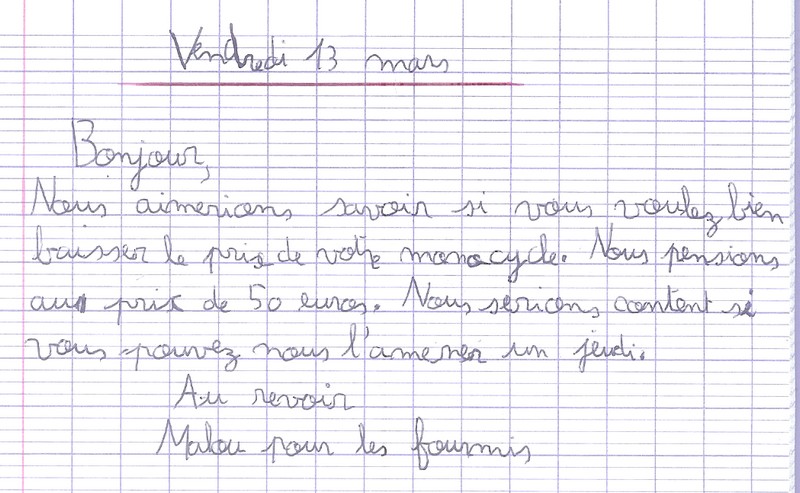 Vendredi 13 mars
Bonjour,
Nous aimerions savoir si vous voulez bien
baisser le prix de votre monocycle. Nous pensions
au prix de 50 euros. Nous serions content si
vous pouvez nous l'amener un jeudi.
Au revoir
Malou pour les fourmis